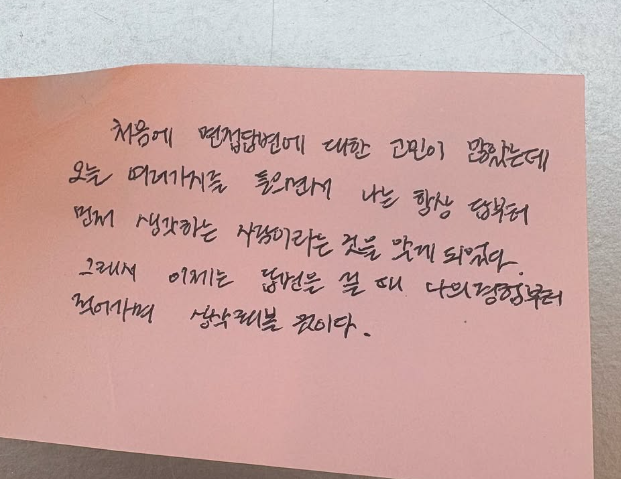 처음에 면접답변에 대한 고민이 많았는데
오늘 여러가지를 들으면서 나는 항상 답부터
먼저 생각하는 사람이라는 것을 알게 되었다.
그래서 이제는 답변을 쓸 때 나의 경험부터
적어가며 생각해볼 것이다.